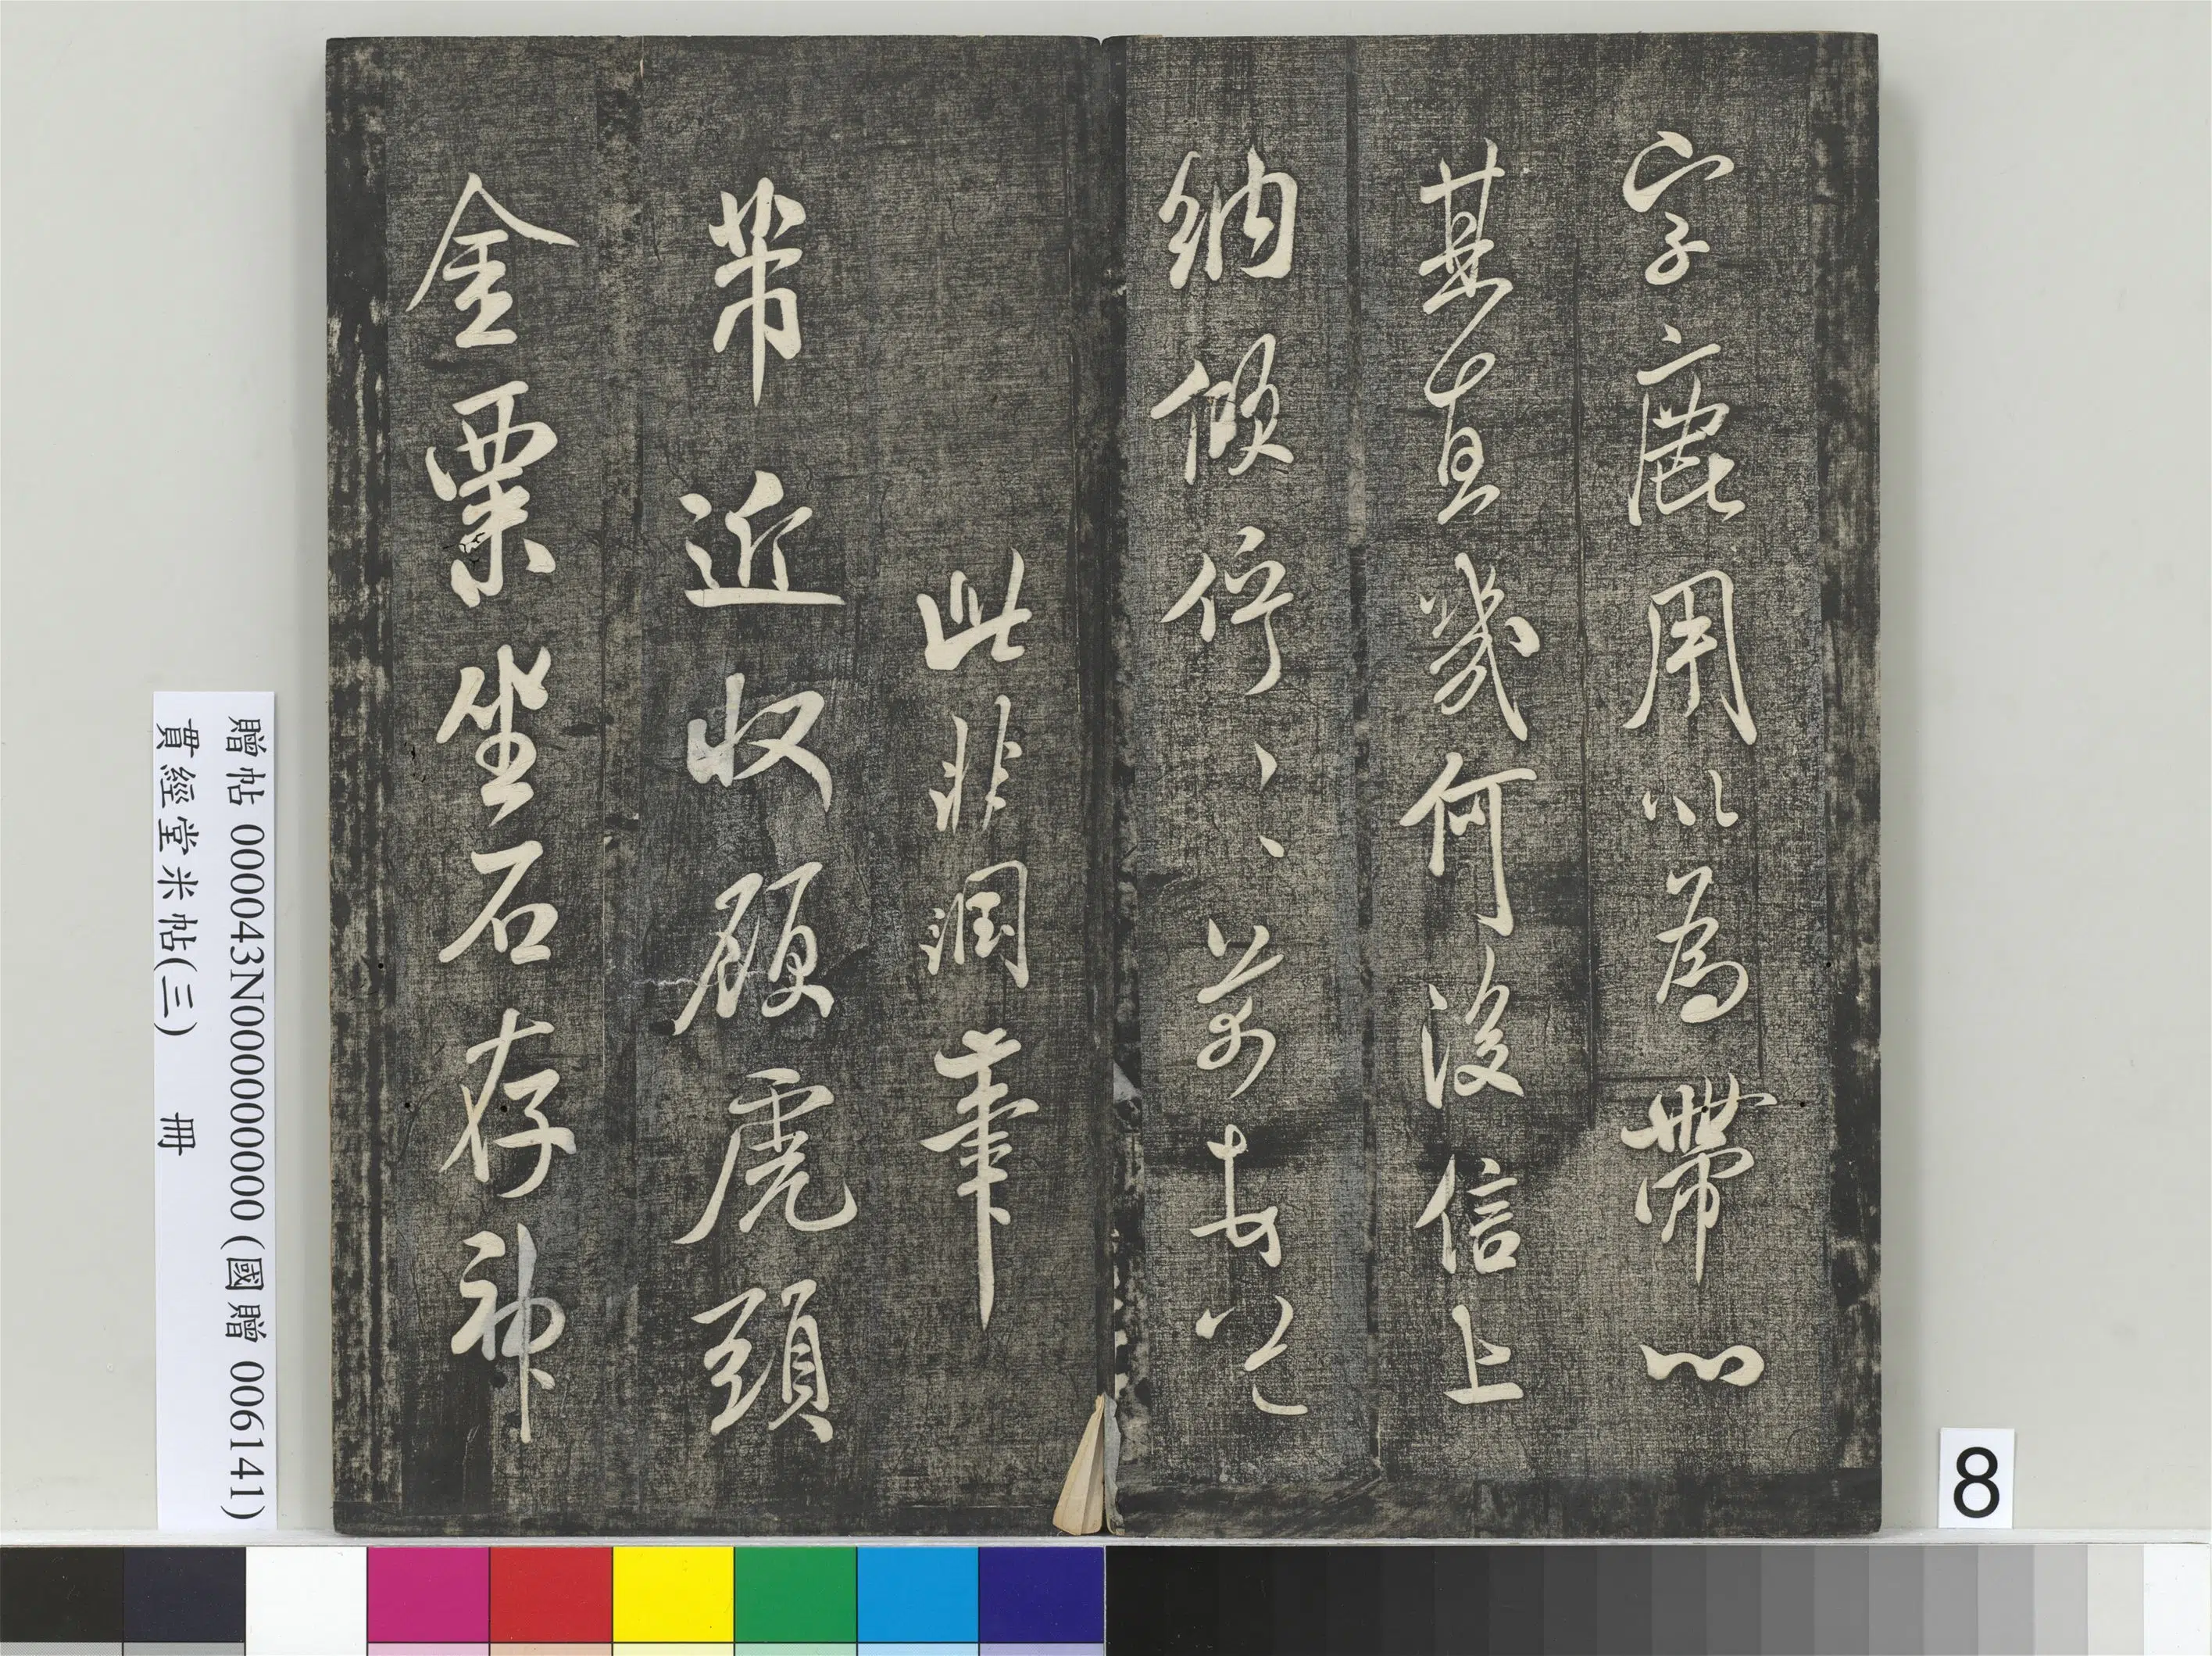 字鹿用以為帶心
其直幾何後信上
納傾佇〻〻
此非潤筆
芾近收顧虎頭
金粟坐石存神
贈帖 000043N000000000 (國贈 006141)
貫經堂米帖(三) 冊
8